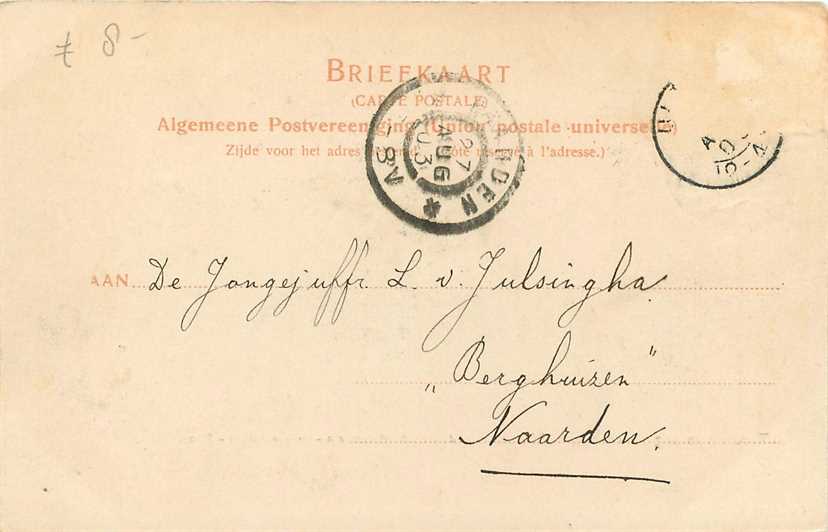 8-
BRIEFKAART
(CARTE POSTALE)
Algemeene Postvereeniging (Union postale universelle)
Zijde voor het adres à l'adresse.)
27
AUG
03
8 V
AAN De Jongejuffr. L. v. Julsingha
„Berghuizen”
Naarden.